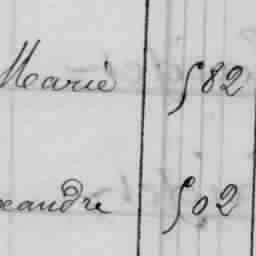 Marie 582
xandre 502